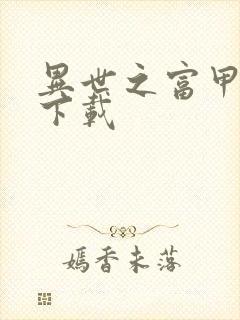 異世之富甲
下載
嫣香未落